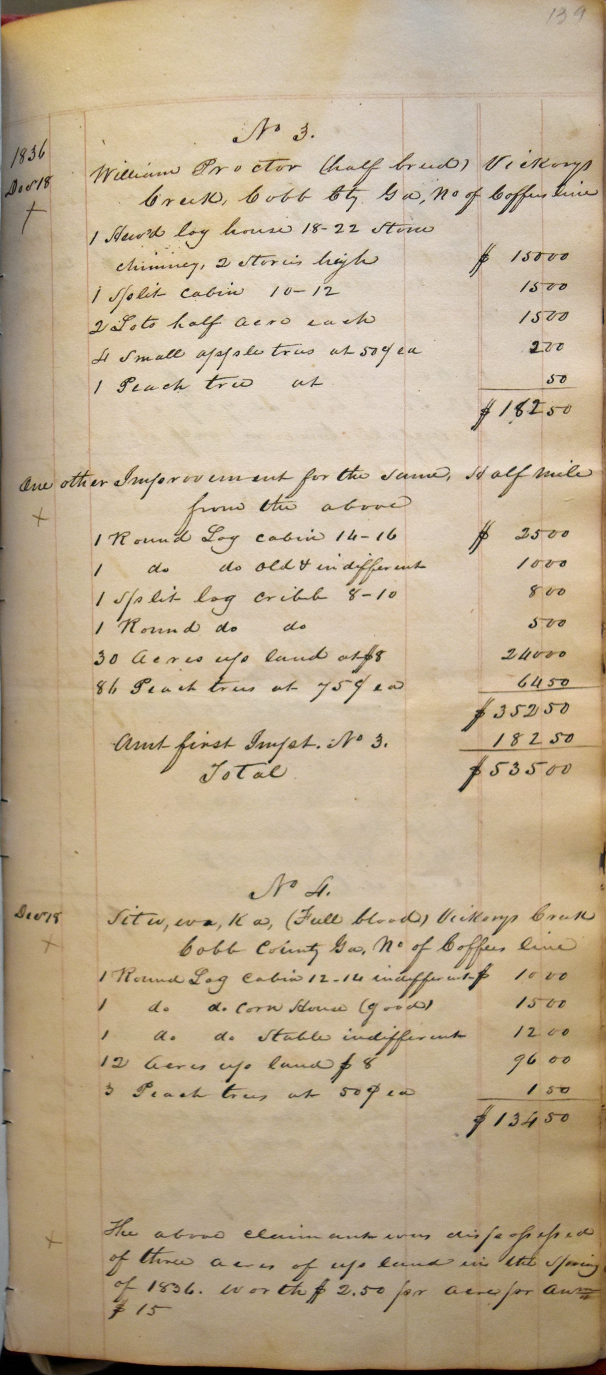 139
No 3.
1836
Decr 18 William Proctor (half breed) Vickorys
Creek, Cobb Cty Ga, No of Coffees line
1 Hewd log house 18-22 Stone
chimney, 2 stories high $ 150 00
1 Split cabin 10-12 15 00
2 Lots half acre each 15 00
4 Small apple trees at 50¢ ea 2 00
1 Peach tree at 50
$ 182 50
One other Improvement for the same, Half mile
from the above
1 Round Log cabin 14-16 $ 25 00
1 do do old & indifferent 10 00
1 Split log cribb 8-10 8 00
1 Round do do 5 00
30 Acres up land at $8 240 00
86 Peach trees at 75¢ ea 64 50
$ 352 50
Amt first Impt. No 3. 182 50
Total $ 535 00
No 4.
Decr 18 Situ, wa, Ka, (Full blood) Vickorys Creek
Cobb County Ga, No of Coffees line
1 Round Log cabin 12-14 indifferent $ 10 00
1 do do Corn House (good) 15 00
1 do do Stable indifferent 12 00
12 Acres up land $8 96 00
3 Peach trees at 50¢ ea 1 50
$ 134 50
The above claimant was dispossessed
of three acres of up land in the Spring
of 1836. worth $ 2.50 pr acre pr Ann
$ 15